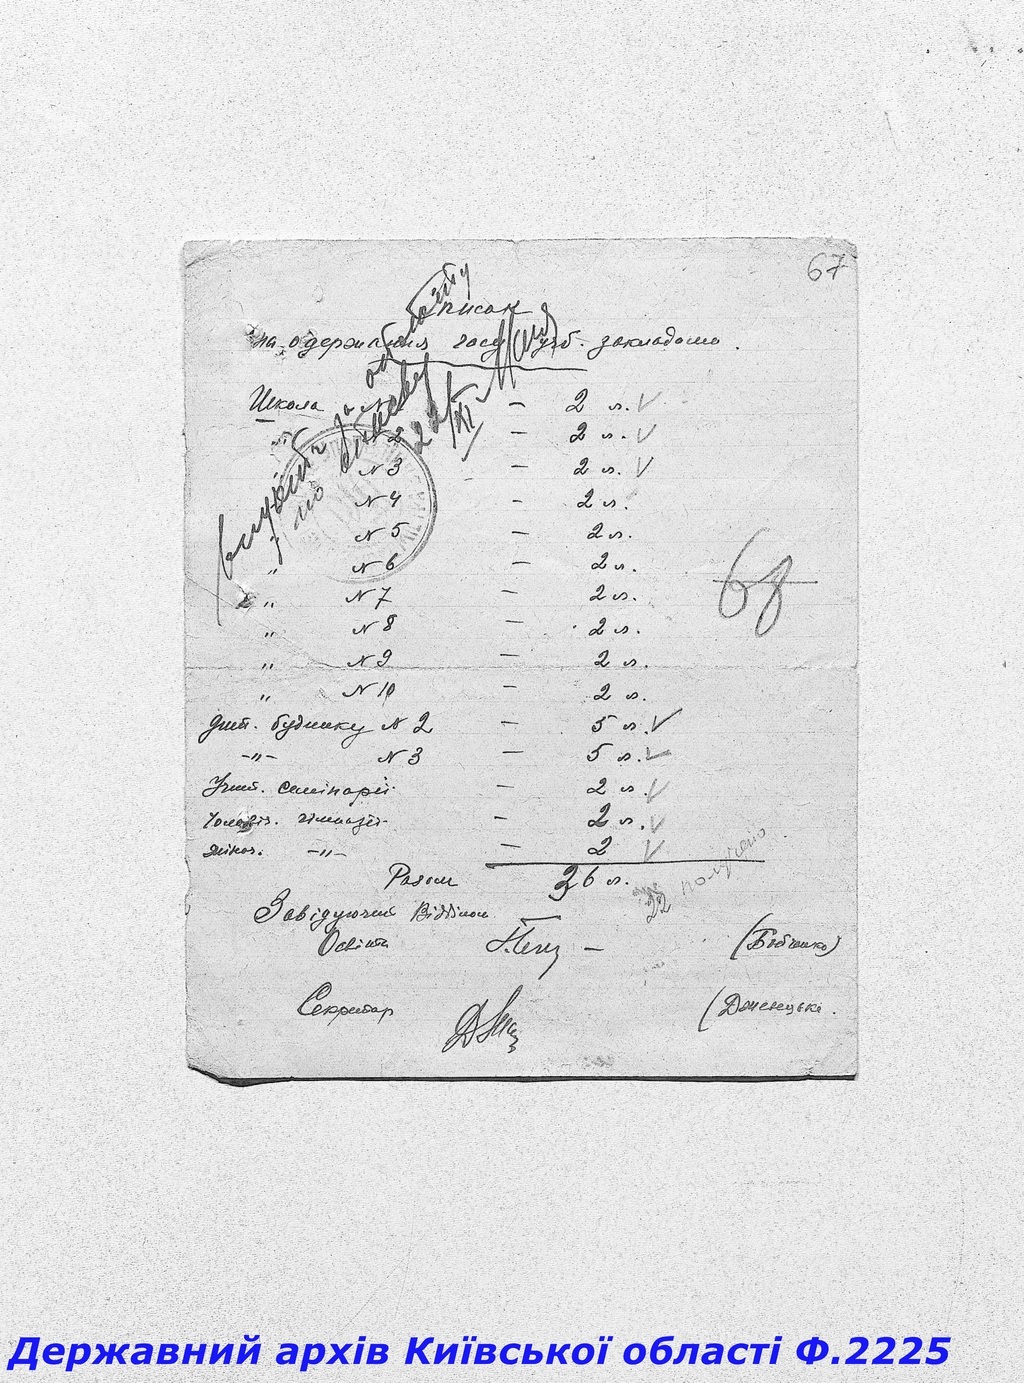 67
Список
на одержання гасу учб. закладами.
Школа — 2 л. ✓
N 2 — 2 л. ✓
N 3 — 2 л. ✓
N 4 — 2 л.
„ N 5 — 2 л.
„ N 6 — 2 л.
„ N 7 — 2 л.
„ N 8 — 2 л.
„ N 9 — 2 л.
„ N 10 — 2 л.
68
дит. будинку N 2 — 5 л. ✓
-„- N 3 — 5 л. ✓
Учит. семінарії — 2 л. ✓
гімназії — 2 л. ✓
жіноч. -„- — 2 ✓
Разом 36 л.
22 получено
Завідуючий Відділом
Освіти —
Секретар
Державний архів Київської області Ф.2225